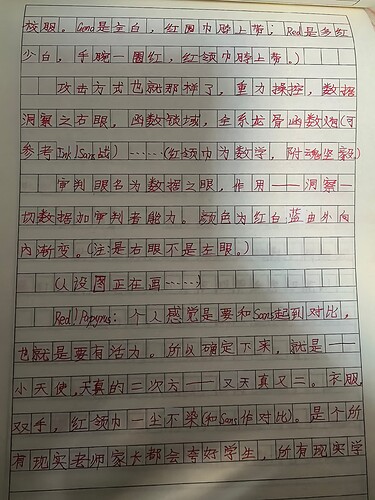 校服。Geno是全白，红围巾脖上带；Red是多红
少白，手腕一圈红，红领巾脖上带。）
攻击方式也就那样了，重力操控，数据
洞察之右眼，函数领域，全系龙骨函数炮(可
参考Ink!Sans战)……(红领巾为数学，附魂坚毅)
审判眼名为数据之眼，作用——洞察一
切数据加审判者能力。颜色为红白蓝由外向
内渐变。(注:是右眼不是左眼。)
(人设图正在画……)
Red!Papyrus:个人感觉是要和Sans起到对比，
也就是要有活力。所以确定下来，就是——
小天使，天真的二次方——又天真又二。衣服，
双手，红领巾一尘不染(和Sans作对比)。是个所
有现实老师家长都会夸好学生，所有现实学